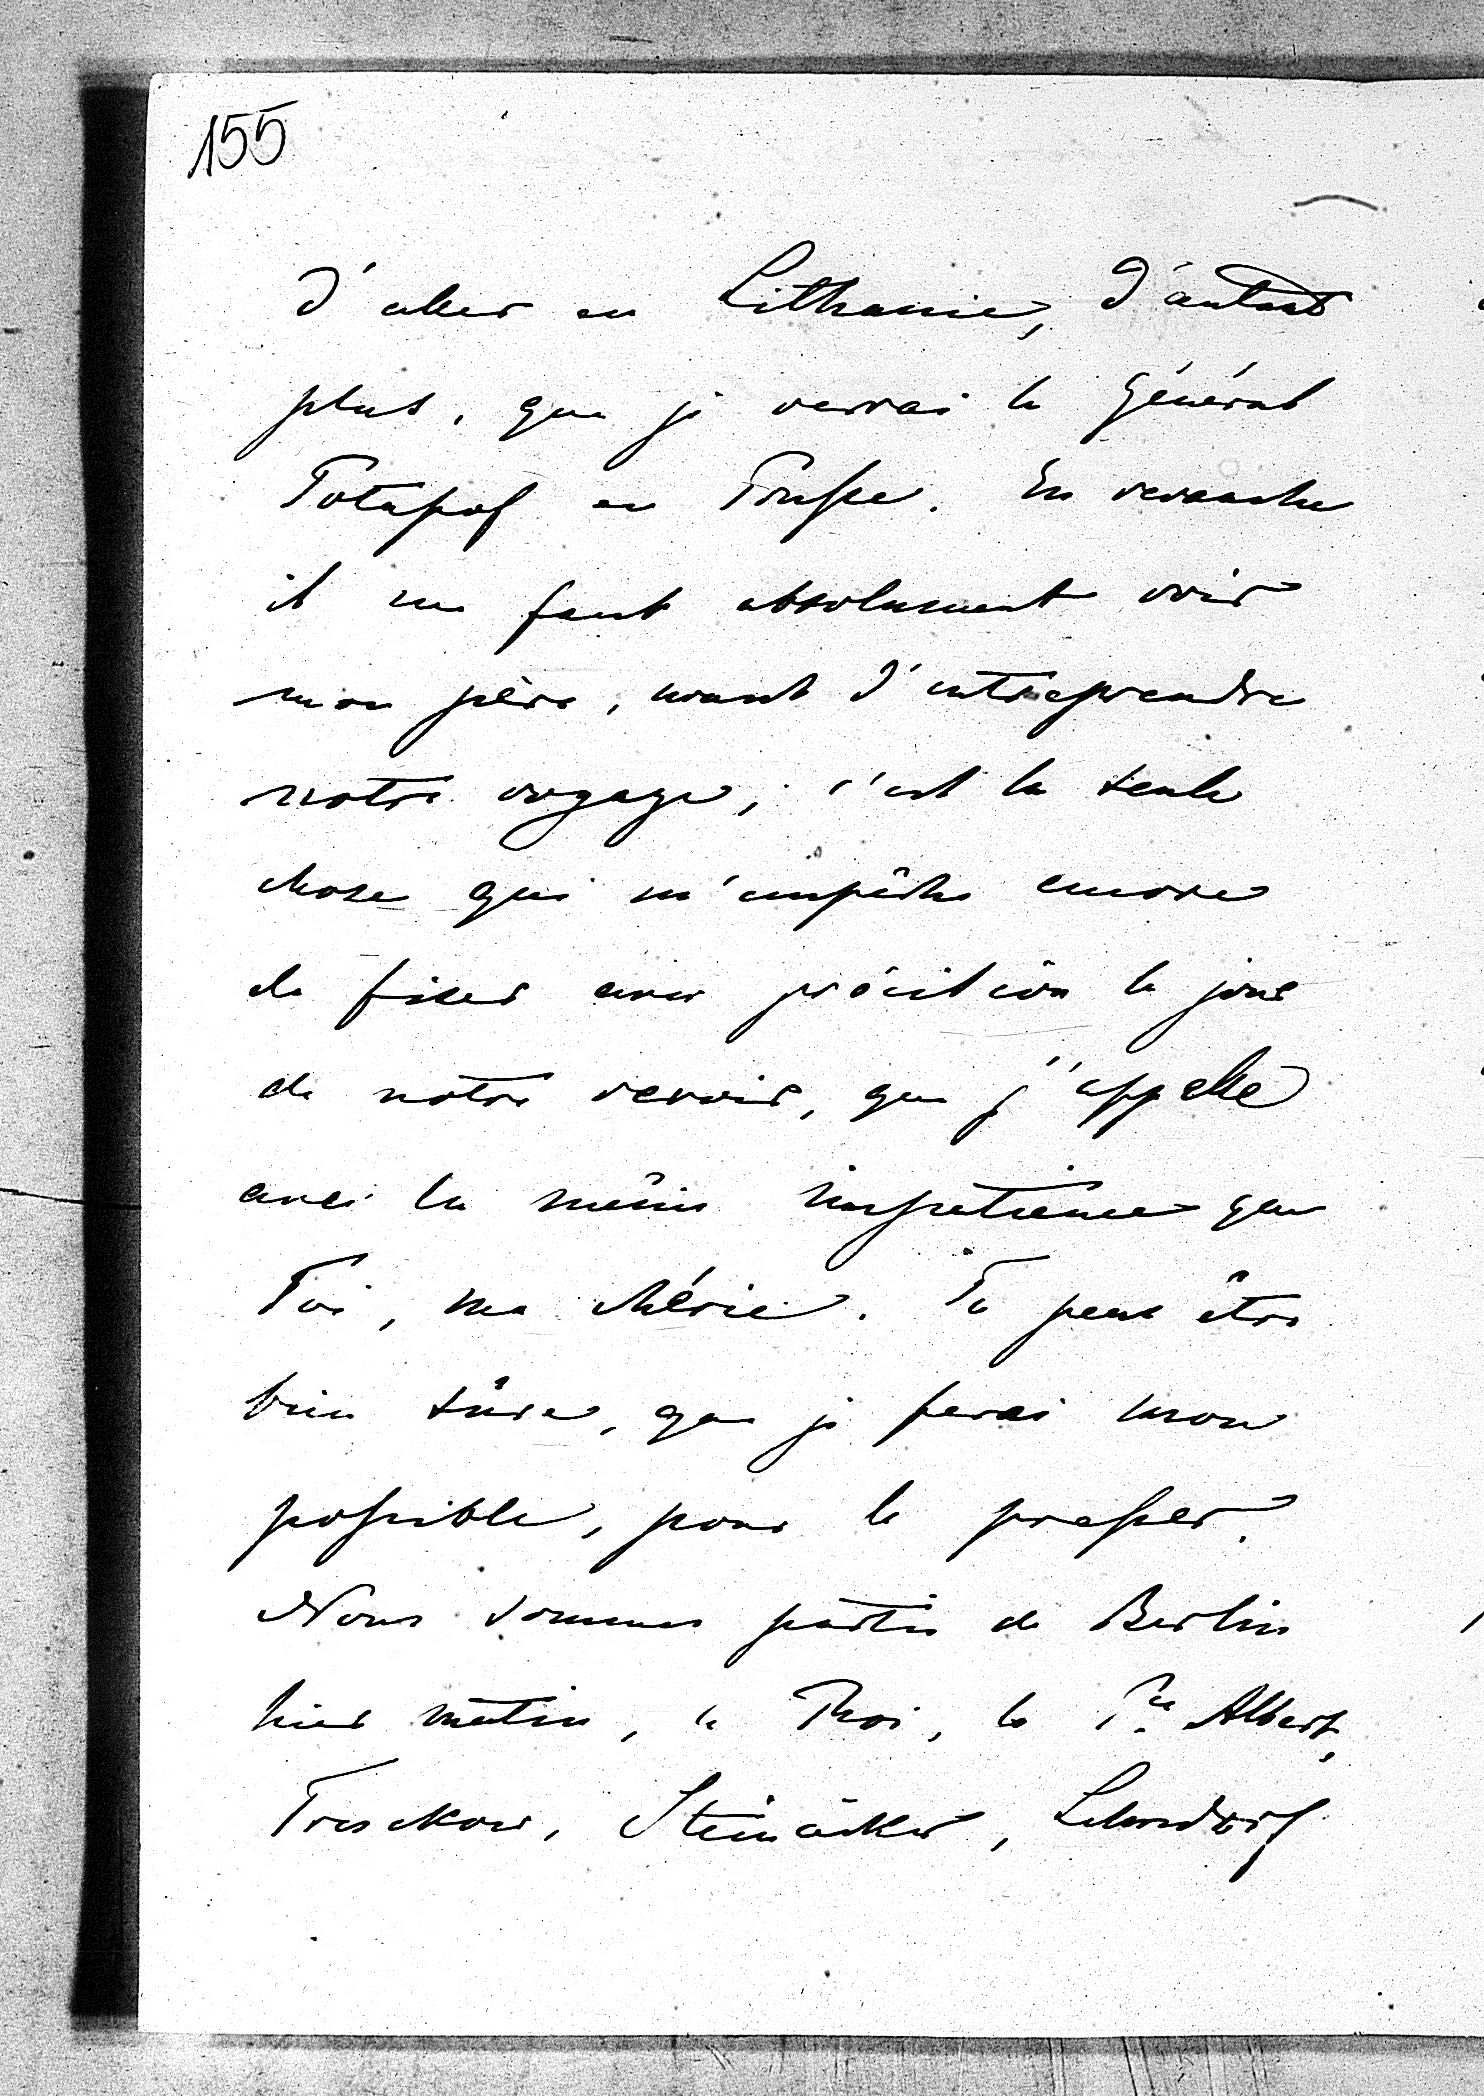 155
d'aller en Lithanie, d'autant
plus, que je verrai le Général
Potapof en Prusse. En revanche
il me faut absolument voir
mon père, avant d'entreprendre
notre voyage; c'est la seule
chose qui m'empêche encore
de fixer avec précision le jour
de notre revoir, que j'appelle
avec la même impatience que
Toi, ma chérie. Tu peux être
bien sûre, que je ferai mon
possible, pour le presser.
Nous sommes partis de Berlin
hier matin, le Roi, le Pce Albert,
Treskow, Steinäcker, Lehndorf